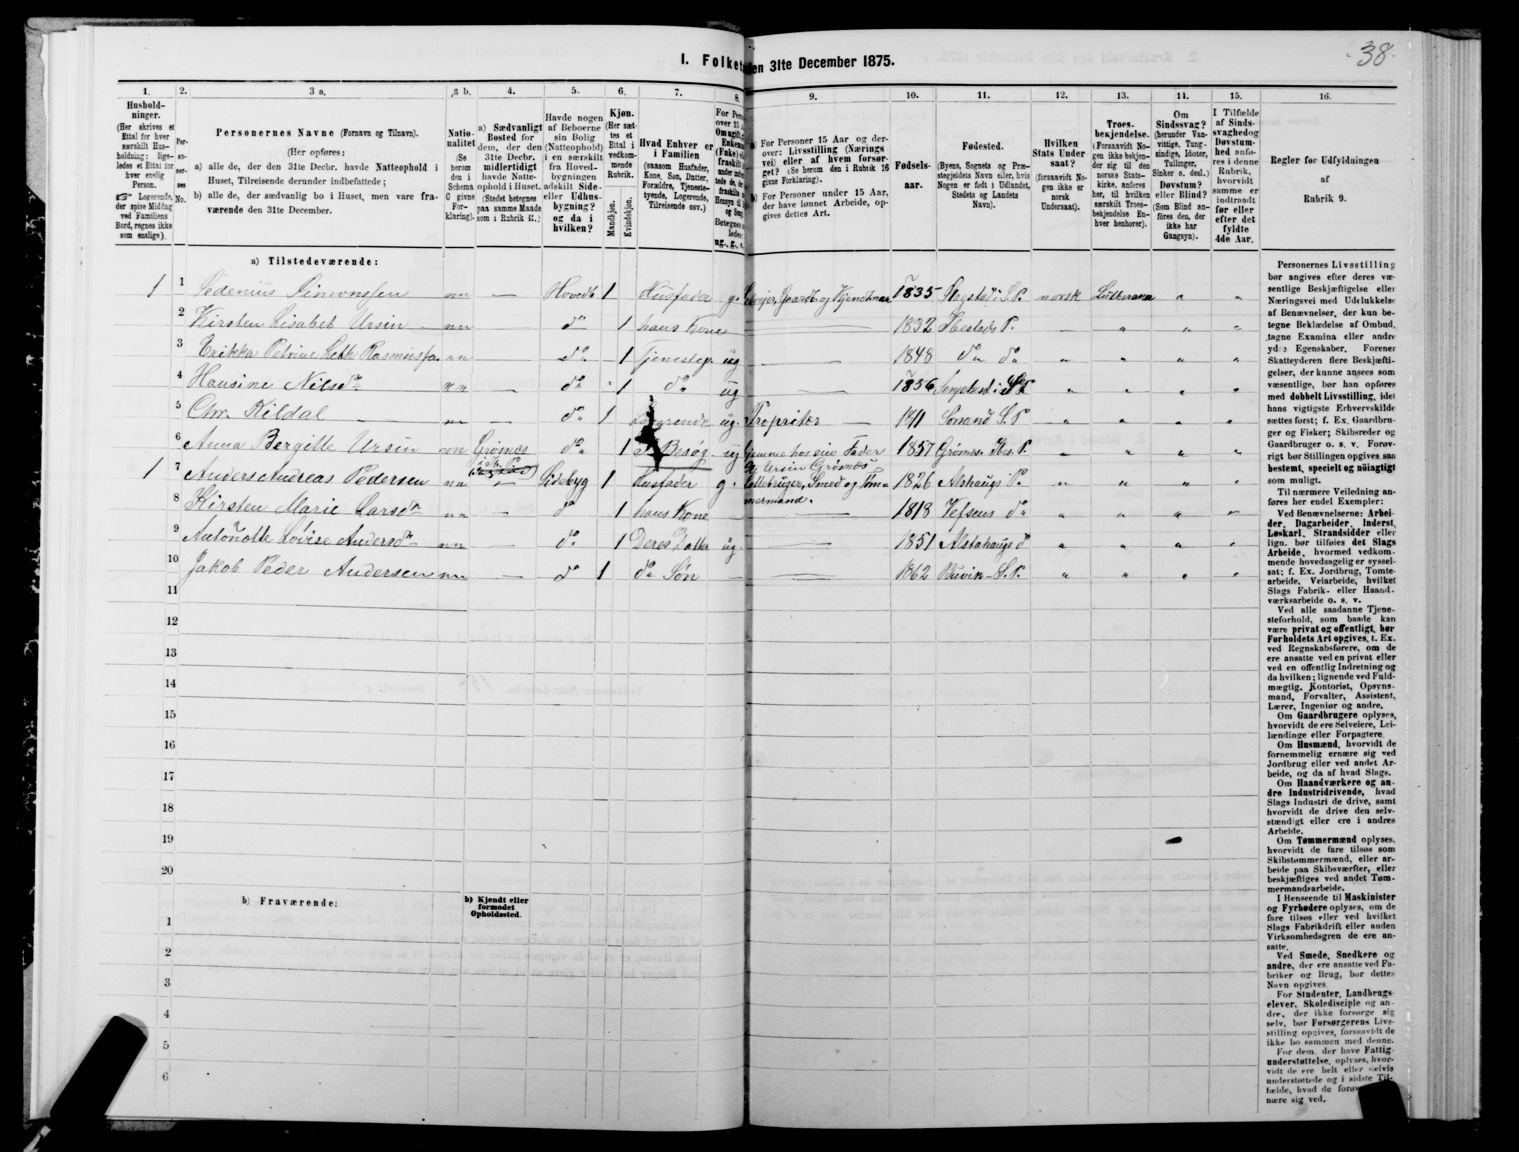 I. Folket
den 31te December 1875.
38.
1.
2.
3 a.
3 b.
4.
5.
6.
7.
8.
9.
10.
11.
12.
13.
14.
15.
16.
Hushold-
ninger.
(Her skrives et
Ettal for hver
særskilt Hus-
holdning; lige-
ledes et Ettal for
hver enslig
Person.
☞ Logerende,
der spise Middag
ved Familiens
Bord, regnes ikke
som enslige).
Per-
soner-
nes
No.
Personernes Navne (Fornavn og Tilnavn).
(Her opføres:
a) alle de, der den 31te Decbr. havde Natteophold i
Huset, Tilreisende derunder indbefattede;
b) alle de, der sædvanlig bo i Huset, men vare fra-
værende den 31te December.
Natio-
nalitet
(Se
herom
den i
Schema
C givne
For-
klaring).
a) Sædvanligt
Bosted for
dem, der den
31te Decbr.
midlertidigt
havde Natte-
ophold i Huset.
(Stedet betegnes
paa samme Maade
som i Rubrik 11.)
Havde nogen
af Beboerne
sin Bolig
(Natteophold)
i en særskilt
fra Hoved-
bygningen
adskilt Side-
eller Udhus-
bygning?
og da i
hvilken?
Kjøn.
(Her sæt-
tes et
Ettal i
vedkom-
mende
Rubrik.
Mandkjøn.
Kvindekjøn.
Hvad Enhver er
i Familien
(saasom Husfader,
Kone, Søn, Datter,
Forældre, Tjeneste-
tyende, Logerende,
Tilreisende osv.)
a) For Personer 15 Aar og der-
over: Livsstilling (Nærings
vei) eller af hvem forsør-
get? (Se herom den i Rubrik 16
givne Forklaring).
b) For Personer under 15 Aar,
der have lønnet Arbeide, op-
gives dettes Art.
Fødsels-
aar.
Fødested.
(Byens, Sognets og Præ-
stegjeldets Navn eller, hvis
Nogen er født i Udlandet,
Stedets og Landets
Navn).
Hvilken
Stats Under
saat?
(forsaavidt No-
gen ikke er
norsk
Undersaat).
Troes-
bekjendelse.
(Forsaavidt No-
gen ikke bekjen-
der sig til den
norske Stats-
kirke, anføres
her, til hvilken
særskilt Troes-
bekjendelse En-
hver henhører).
Om
Sindssvag?
(herunder Van-
vittige, Tung-
sindige, Idioter,
Tullinger,
Sinker o. desl.)
Døvstum?
eller Blind?
(Som Blind an-
føres den, der
ikke har
Gangsyn).
I Tilfælde
af Sinds-
svaghedog
Døvstum-
hed anfø-
res i denne
Rubrik,
hvorvidt
samme er
indtraadt
før eller
efter det
fyldte
4de Aar.
Regler før Udfyldningen
af
Rubrik 9.
a) Tilstedeværende:
1 1 Sedenius Simonssen nn — Hovedb 1 Husfader g. Selveier, Gaardb. og Kjendtman 1835 S.P. norsk Lutheraner " "
2 Kirsten Lisabet Ursin nn do 1 hans Kone 1832 Ibestads P.
3 Erikka Petrine Rasmusse nn do 1 Tjenestep. ug 1848 do do
4 Hansine Nilsd. nn do 1 do ug 1856
5 Chr. Kildal nn do 1 Logerende ug. Propritær Sørsand S.P.
6 Anna Bergitte Ursin nn Grøsnæs do 1 Besøg ug hjemme hos sin Fader 1857 Grøsnæs Ibes. P.
Ursin Grøsnæs
1 7 Anders Andreas Pedersen nn Sidebyg 1 Husfader g. Smed og Tøm= 1826 Alstahaugs P.
mermand.
8 Kirsten Marie Larsd. nn do 1 hans Kone 1818 Vefsens do
9 Antonotte Lovise Andersd. nn do 1 Deres Datter ug. 1851 Alstahaugs do
10 Jakob Peder Andersen nn do 1 do Søn 1862
11
12
13
14
15
16
17
18
19
20
b) Fraværende:
b) Kjendt eller
formodet
Opholdssted.
1
2
3
4
5
6
Personernes Livsstilling
bør angives efter deres væ-
sentlige Beskjæftigelse eller
Næringsvei med Udelukkelse
af Benævnelser, der kun be-
tegne Beklædelse af Ombud,
tagne Examina eller andre
ydre Egenskaber. Forener
Skatteyderen flere Beskjæfti-
gelser, der kunne ansees som
væsentlige, bør han opføres
med dobbelt Livsstilling, idet
hans vigtigste Erhvervskilde
sættes først; f. Ex. Gaardbru-
ger og Fisker; Skibsreder og
Gaardbruger o. s. v. Forøv-
rigt bør Stillingen opgives saa
bestemt, specielt og nøiagtigt
som muligt.
Til nærmere Veiledning an-
føres her endel Exempler:
Ved Benævnelserne: Arbei-
der, Dagarbeider, Inderst,
Løskarl, Strandsidder eller
lign. bør tilføies det Slags
Arbeide, hvormed vedkom-
mende hovedsagelig er syssel-
sat; f. Ex. Jordbrug, Tomte-
arbeide, Veiarbeide, hvilket
Slags Fabrik- eller Haand-
værksarbeide o. s. v.
Ved alle saadanne Tjene-
steforhold, som baade kan
være privat og offentligt, bør
Forholdets Art opgives, t. Ex.
ved Regnskabsførere, om de
ere ansatte ved en privat eller
ved en offentlig Indretning og
da hvilken; lignende ved Fuld-
mægtig, Kontorist, Opsyns-
mand, Forvalter, Assistent,
Lærer, Ingeniør og andre.
Om Gaardbrugere oplyses,
hvorvidt de ere Selveiere, Lei-
lændinge eller Forpagtere.
Om Husmænd, hvorvidt de
fornemmelig ernære sig ved
Jordbrug eller ved andet Ar-
beide, og da af hvad Slags.
Om Haandværkere og an-
dre Industridrivende, hvad
Slags Industri de drive, samt
hvorvidt de drive den selv-
stændigt eller ere i andres
Arbeide.
Om Tømmermænd oplyses,
hvorvidt de fare tilsøs som
Skibstømmermænd, eller ar-
beide paa Skibsværfter, eller
beskjæftiges ved andet Tøm-
mermandsarbeide.
I Henseende til Maskinister
og Fyrbødere oplyses, om de
fare tilsøs eller ved hvilket
Slags Fabrikdrift eller anden
Virksomhedsgren de ere an-
satte.
Ved Smede, Snedkere og
andre, der ere ansatte ved Fa-
briker og Brug, bør dettes
Navn opgives.
For Studenter, Landbrugs-
elever, Skoledisciple og an-
dre, der ikke forsørge sig
selv, bør Forsørgerens Livs-
stilling opgives, forsaavidt de
ikke bo sammen med denne.
For dem, der have Fattig-
understøttelse, oplyses, hvor-
vidt de ere helt eller delvis
understøttede og i sidste Til-
fælde, hvad de
nære sig ved.